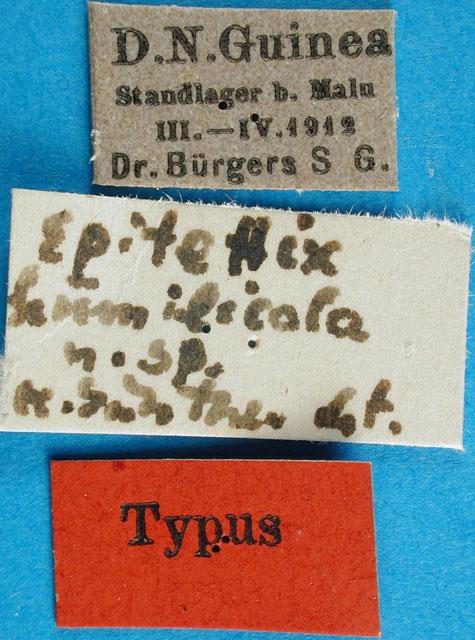 D.N.Guinea
Standlager b. Malu
III.—IV.1912
Dr. Bürgers S G.
Epitettix
humilicola
n. sp.
K. Günther det.
Typus